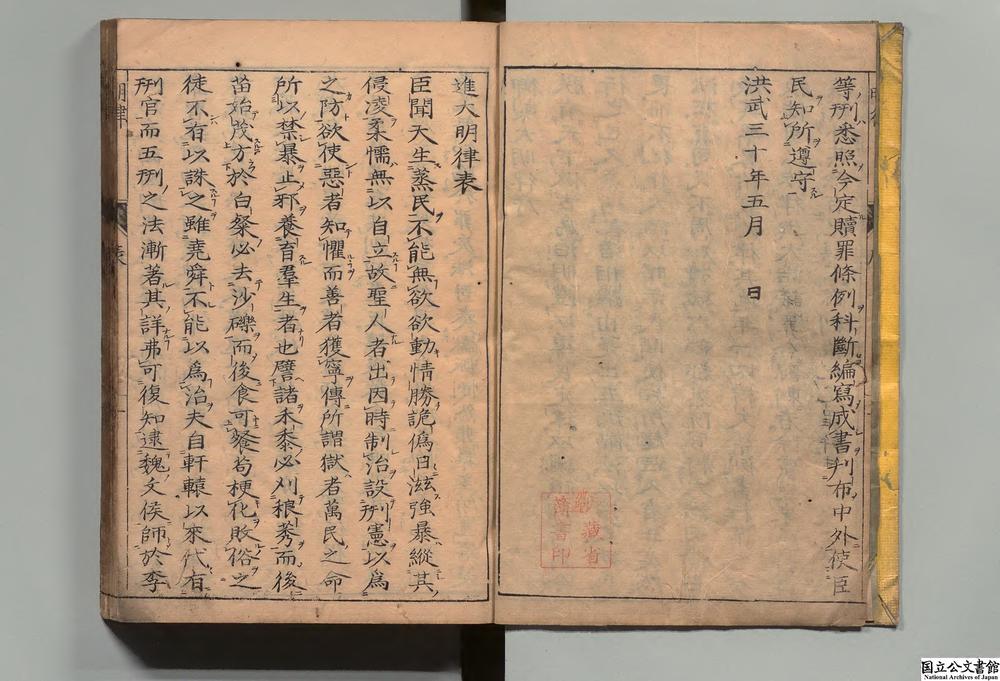 等刑悉照今定贖罪條例科斷編寫成書刋布中外使臣
民知所遵守
洪武三十年五月　日
進大明律表
臣聞天生蒸民不能無欲欲動情勝詭偽日滋強暴縱其
侵凌柔懦無以自立故聖人者出因時制治設刑憲以爲
之防欲使惡者知懼而善者獲寧傳所謂獄者萬民之命
所以禁暴止邪養育羣生者也譬諸禾黍必刈稂莠而後
苗始茂方於白粲必去沙礫而後食可餐苟梗化敗俗之
徒不有以誅之雖堯舜不能以爲治夫自軒轅以來代有
刑官而五刑之法漸著其詳弗可復知逮魏文侯師於李
表
藏省
書印
国立公文書館
National Archives of Japan